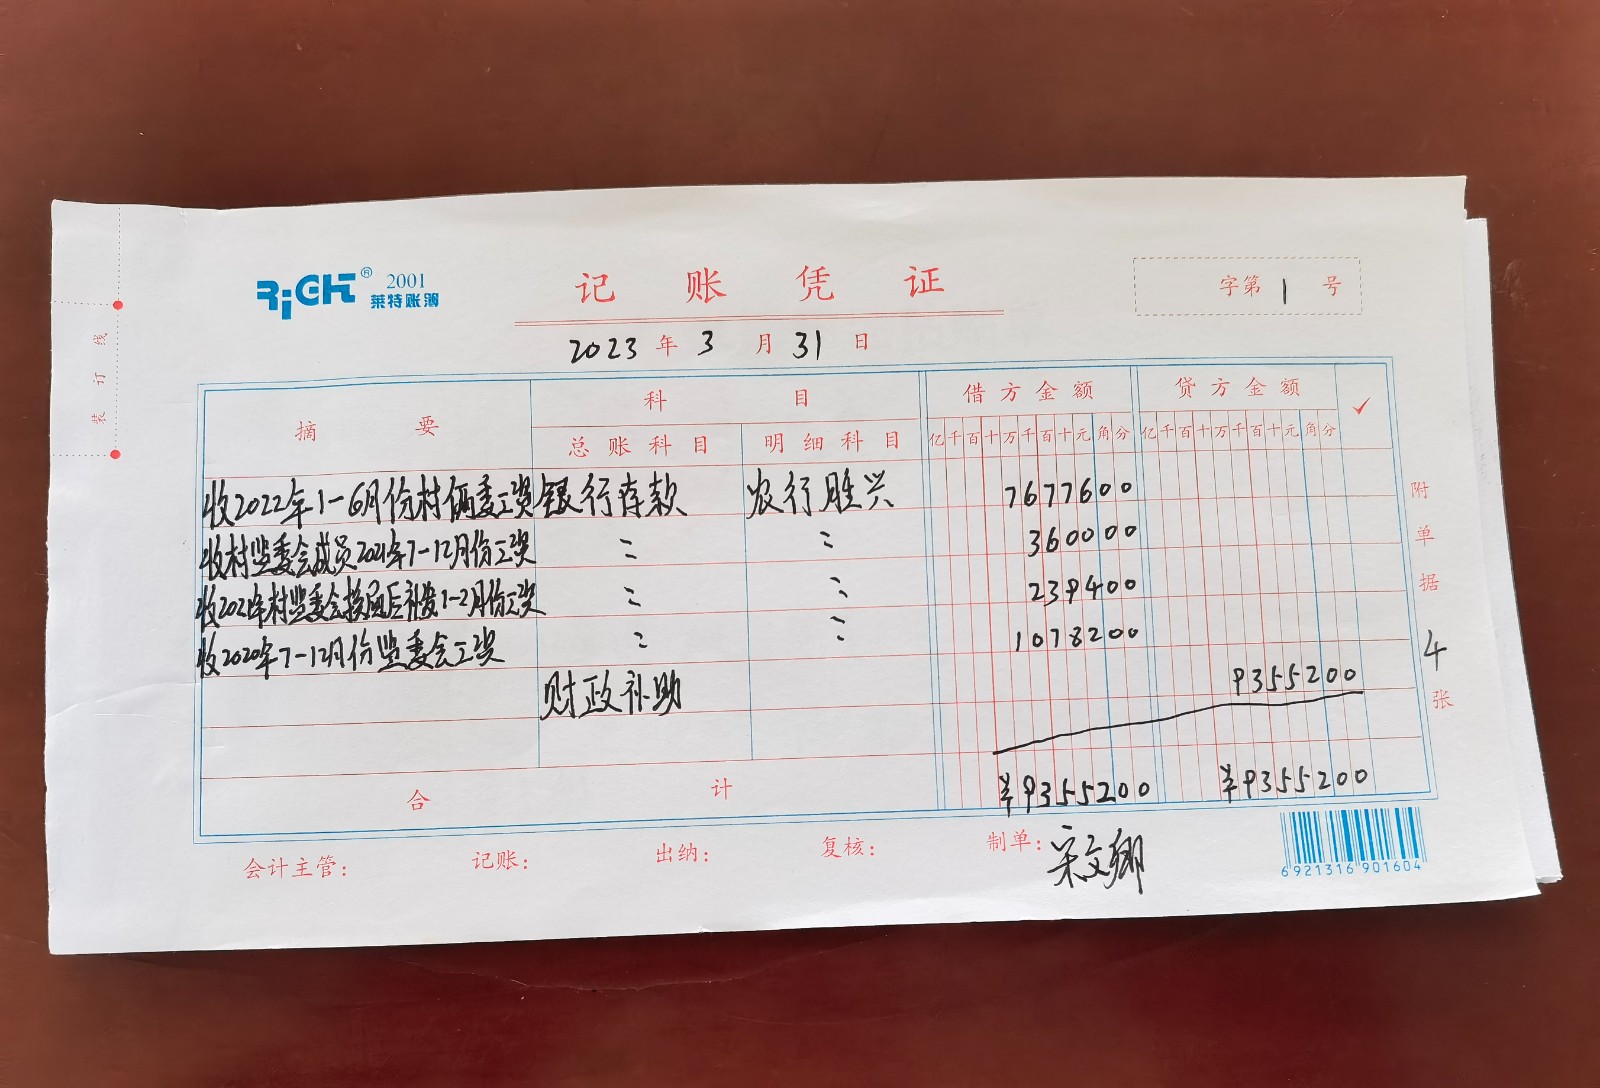 RIGHT® 2001
莱特账簿
记 账 凭 证
字第 1 号
2023 年 3 月 31 日
装 订 线
摘 要
科 目
借方金额
贷方金额
✓
总账科目
明细科目
亿千百十万千百十元角分
亿千百十万千百十元角分
收2022年1-6月份村俩委工资 银行存款 农行胜兴 7677600
收村监委会成员2021年7-12月份工资 〃 〃 360000
收2021年村监委会换届后补发1-2月份工资 〃 〃 239400
收2020年7-12月份监委会工资 〃 〃 1078200
财政补助 9355200
合 计 ¥9355200 ¥9355200
附单据 4 张
会计主管: 记账: 出纳: 复核: 制单: 宋文卿
6921316901604